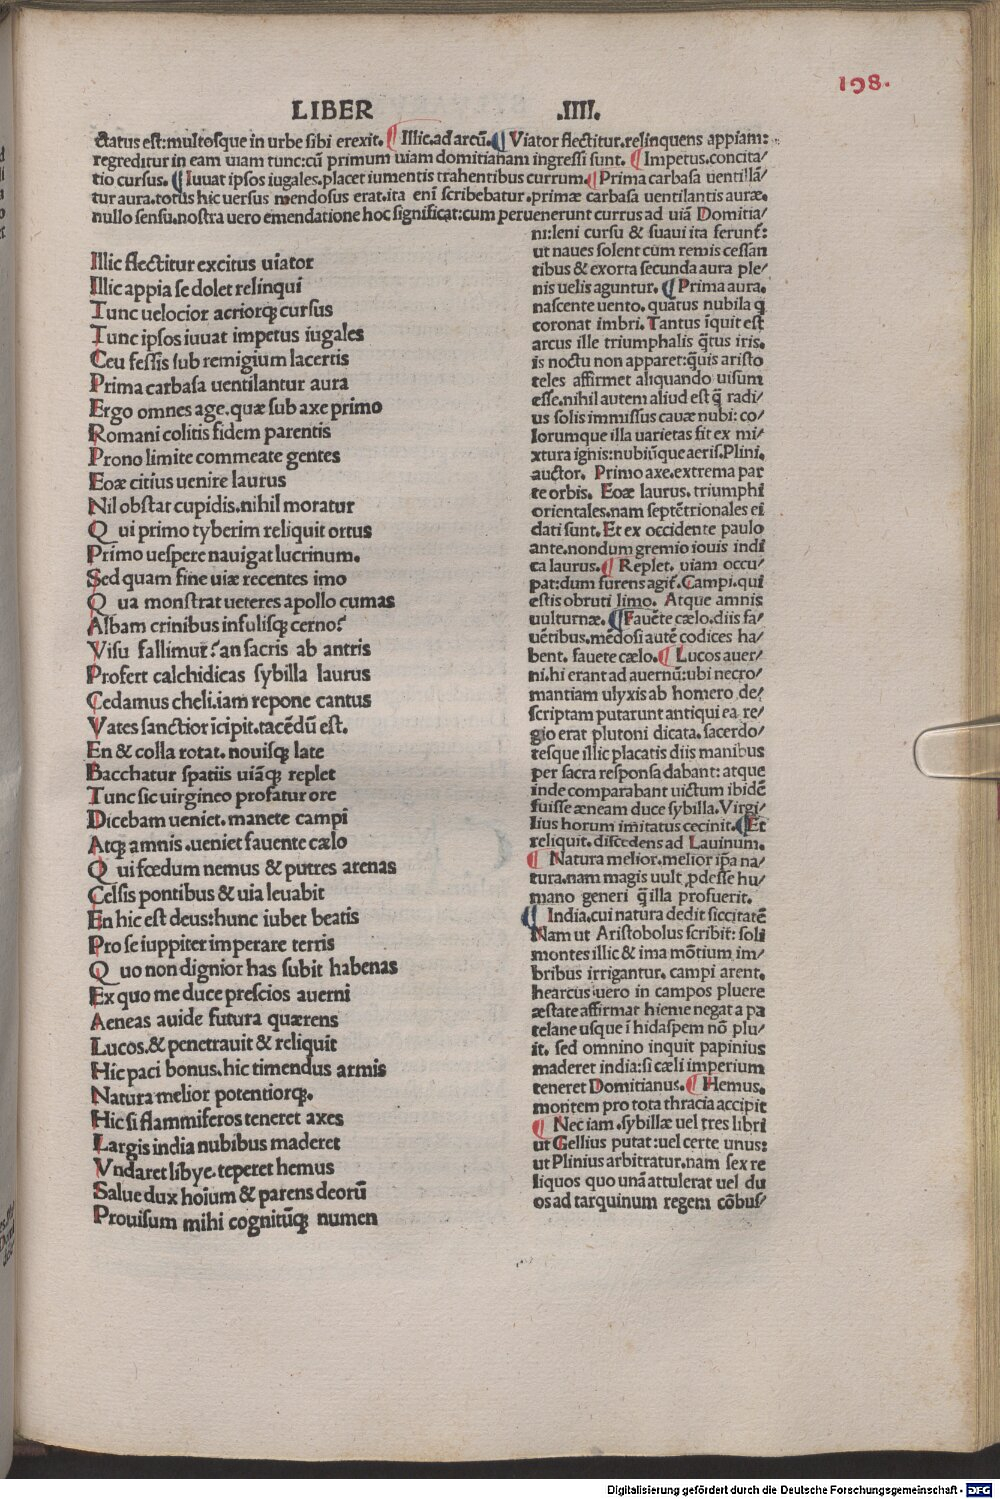 198.
LIBER .IIII.
ctatus est: multosque in urbe sibi erexit. ¶ Illic. ad arcū. ¶ Viator flectitur. relinquens appiam:
regreditur in eam uiam tunc: cū primum uiam domitianam ingressi sunt. ¶ Impetus. concita/
tio cursus. ¶ Iuuat ipsos iugales. placet iumentis trahentibus currum. ¶ Prima carbasa uentillā/
tur aura. totus hic uersus mendosus erat. ita enī scribebatur. primæ carbasa uentilantis auræ.
nullo sensu. nostra uero emendatione hoc significat: cum peruenerunt currus ad uiā Domitia/
Illic flectitur excitus uiator
Illic appia se dolet relinqui
Tunc uelocior acriorqꝫ cursus
Tunc ipsos iuuat impetus iugales
Ceu fessis sub remigium lacertis
Prima carbasa uentilantur aura
Ergo omnes age. quæ sub axe primo
Romani colitis fidem parentis
Prono limite commeate gentes
Eoæ citius uenire laurus
Nil obstat cupidis. nihil moratur
Q ui primo tyberim reliquit ortus
Primo uespere nauigat lucrinum.
Sed quam fine uiæ recentes imo
Q ua monstrat ueteres apollo cumas
Albam crinibus infulisqꝫ cerno?
Visu fallimur? an sacris ab antris
Profert calchidicas sybilla laurus
Cedamus cheli. iam repone cantus
Vates sanctior īcipit. tacēdū est.
En & colla rotat. nouisqꝫ late
Bacchatur spatiis uiāqꝫ replet
Tunc sic uirgineo profatur ore
Dicebam ueniet. manete campi
Atqꝫ amnis. ueniet fauente cælo
Q ui fœdum nemus & putres arenas
Celsis pontibus & uia leuabit
En hic est deus: hunc iubet beatis
Pro se iuppiter imperare terris
Q uo non dignior has subit habenas
Ex quo me duce prescios auerni
Aeneas auide futura quærens
Lucos. & penetrauit & reliquit
Hic paci bonus. hic timendus armis
Natura melior potentiorqꝫ.
Hic si flammiferos teneret axes
Largis india nubibus maderet
Vndaret libye. teperet hemus
Salue dux hoīum & parens deorū
Prouisum mihi cognitūqꝫ numen
ni: leni cursu & suaui ita ferunt̄:
ut naues solent cum remis cessan
tibus & exorta secunda aura ple/
nis uelis aguntur. ¶ Prima aura.
nascente uento. quatus nubila q̄
coronat imbri. Tantus īquit est
arcus ille triumphalis q̄tus iris.
is noctu non apparet: q̄uis aristo
teles affirmet aliquando uisum
esse. nihil autem aliud est q̄ radi/
us solis immissus cauæ nubi: co/
lorumque illa uarietas fit ex mi/
xtura ignis: nubiūque aeris. Plini.
auctor. Primo axe. extrema par
te orbis. Eoæ laurus. triumphi
orientales. nam septētrionales ei
dati sunt. Et ex occidente paulo
ante. nondum gremio iouis indi
ca laurus. ¶ Replet. uiam occu/
pat: dum furens agit̄. Campi. qui
estis obruti limo. Atque amnis
uulturnæ. ¶ Fauēte cælo. diis fa/
uētibus. mēdosi autē codices ha/
bent. fauete cælo. ¶ Lucos auer/
ni. hi erant ad auernū: ubi necro/
mantiam ulyxis ab homero de/
scriptam putarunt antiqui ea re/
gio erat plutoni dicata. sacerdo/
tesque illic placatis diis manibus
per sacra responsa dabant: atque
inde comparabant uictum ibidē
fuisse æneam duce sybilla. Virgi/
lius horum imitatus cecinit. ¶ Et
reliquit. discedens ad Lauinum.
¶ Natura melior. melior ip̄a na/
tura. nam magis uult ꝓdesse hu/
mano generi q̄ illa profuerit.
¶ India. cui natura dedit siccitatē
Nam ut Aristobolus scribit: soli
montes illic & ima mōtium im/
bribus irrigantur. campi arent.
hearcus uero in campos pluere
æstate affirmat hieme negat a pa
telane usque ī hidaspem nō plu/
it. sed omnino inquit papinius
maderet india: si cæli imperium
teneret Domitianus. ¶ Hemus.
montem pro tota thracia accipit
¶ Nec iam. sybillæ uel tres libri
ut Gellius putat: uel certe unus:
ut Plinius arbitratur. nam sex re
liquos quo unā attulerat uel du
os ad tarquinum regem cōbus/
Digitalisierung gefördert durch die Deutsche Forschungsgemeinschaft - DFG